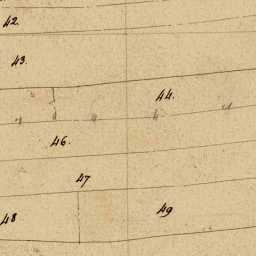 42.
43.
44.
46.
47
48
49